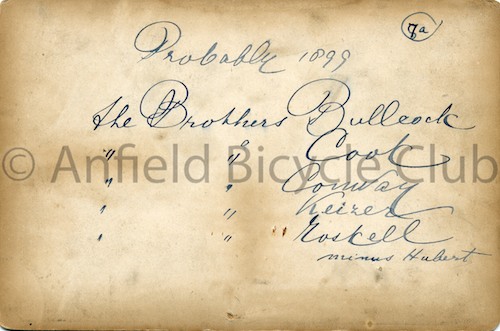 7a
Probably 1899
the Brothers Bullcock
" " Cook
© Anfield Bicycle Club
" " Conway
" " Keizer
" " Roskell
minus Hubert